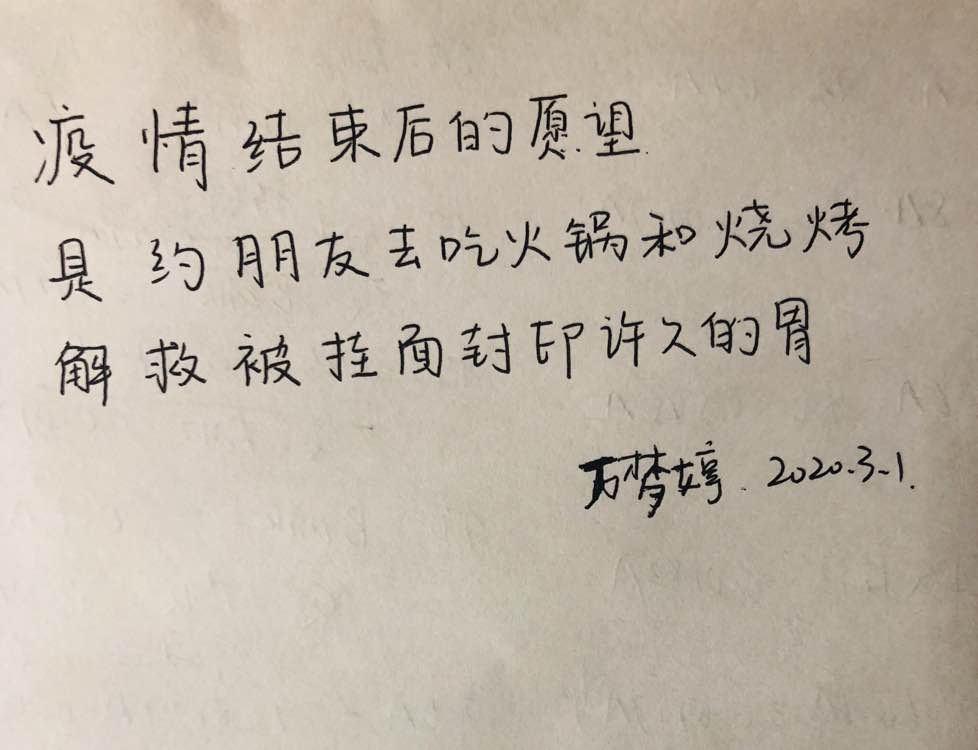 疫情结束后的愿望
是约朋友去吃火锅和烧烤
解救被挂面封印许久的胃
万梦婷 2020.3.1.